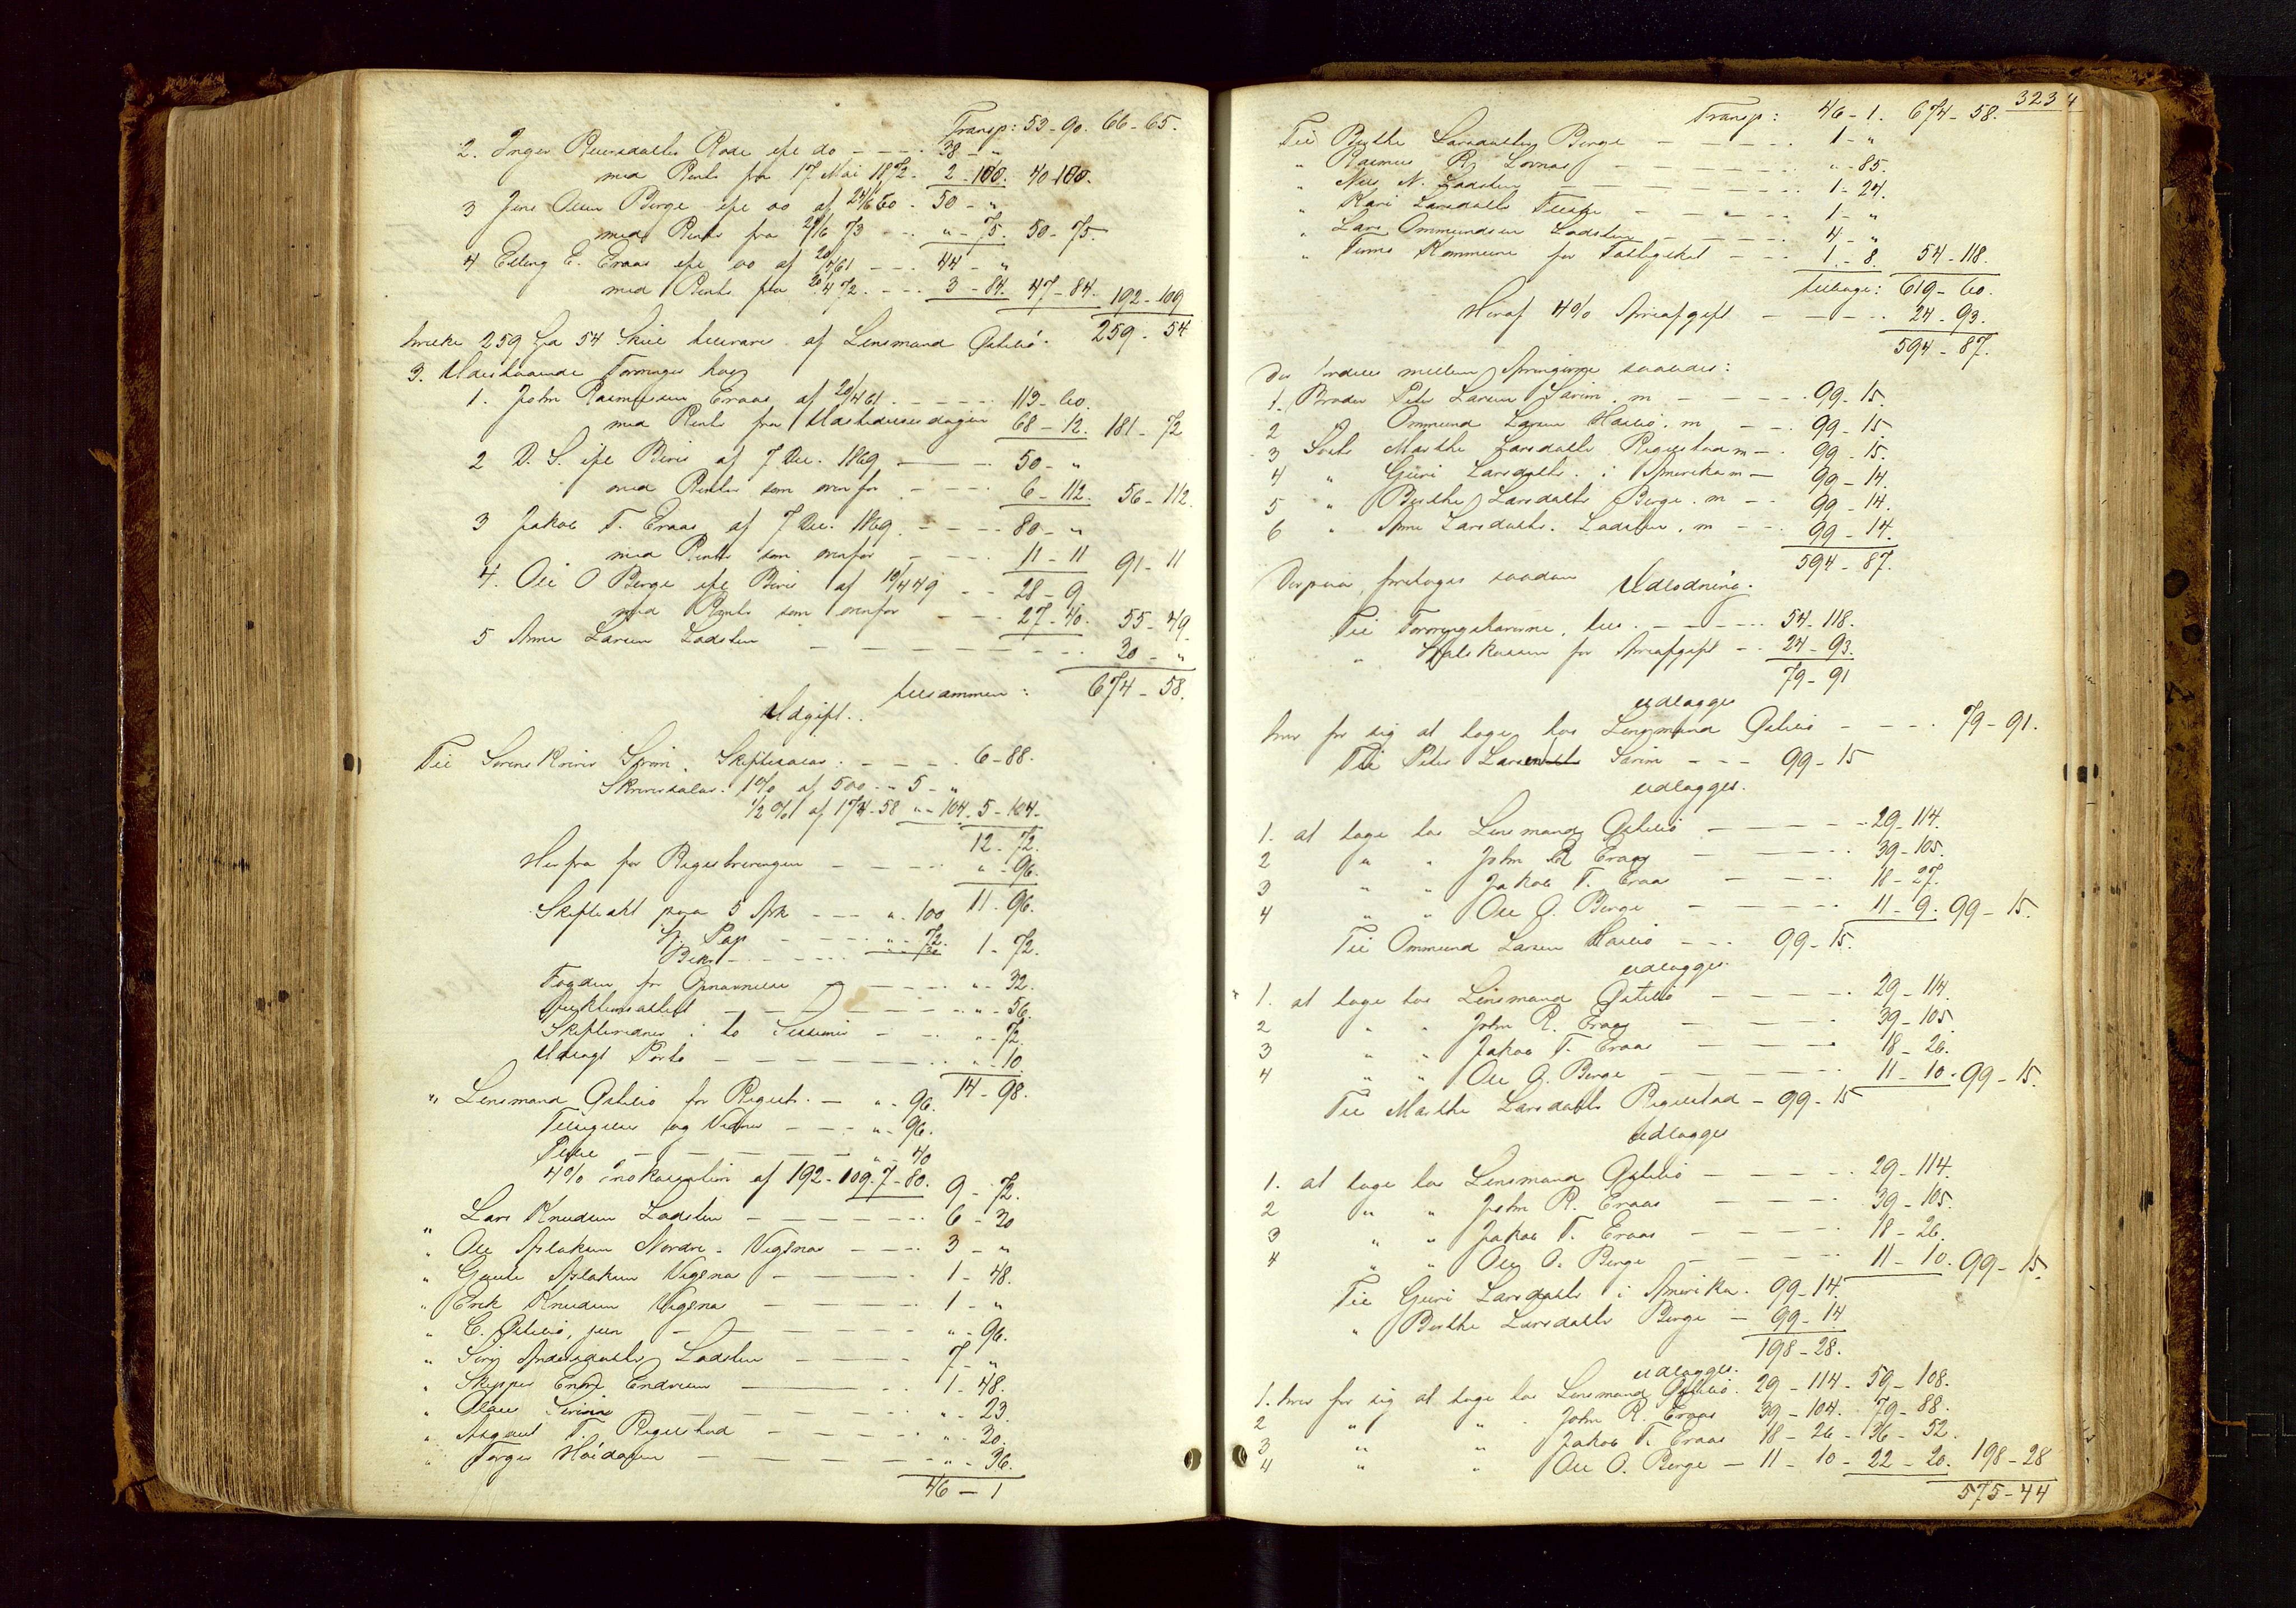 Transp: 53-90. 66-65.
2. Inger Reiersdatter Rode efr do - - - 38 - "
med Rente fra 17 Mai 1872. 2-100. 40-100.
3 Jens Olsen Berge efr oo af 24/6 60 - 50 - "
med Rente fra 24/6 73 - - - " - 75. 50-75.
4 Elling E. Eraas efr oo af 20/4 61 - - - 44 - "
med Rente fra 20/4 72. - - - 3-84. 47-84. 192-109
259-54
hvilke 259 Spd 54 Skil tilsvares af Lensmand Østebø.
3. Udestaaende Fordringer hos
1. John Rasmussen Eraas af 20/4 61 - - - - - 113-60.
med Rente fra Udstedelsesdagen 68-12. 181-72
2 D. S. efr Bevis af 7 Dec. 1869 - - - 50 - "
med Renter som ovenfor - - - 6-112. 56-112.
3 Jakob T. Eraas af 7 Dec. 1869. - - - - 80 - "
med Rente som ovenfor - - - 11-11 91-11
4. Ole O Berge efr Bevis af 19/4 49 - - 28-9
med Rente som ovenfor - - - 27-40. 55-49
5 Arne Larsen Ladsten - - - - - - - - - - 30 - "
tilsammen: 674-58.
Udgift.
Til Sorenskriver Sørin. Skiftesalar. - - - - 6-88.
Skriversalar. 1% af 500 - " 5 - "
1/2 % af 174-58 " - 104. 5-104.
12-72.
Herfra for Registreringen - - - - - " - 96.
11-96.
Skifteakt paa 5 Ark - - - " - 100
St. Pap - - - - " - 72. 1-72.
Fogden for Opnævnelse - - - - - " - 32.
Auktionsattest - - - - - - - " - 56.
Skiftevidner i to Sessioner - - - " - 72.
Udlagt Porto - - - - - - - - " - 10
14-98.
" Lensmand Østebø for Registr. - " - 96.
Tilsigelser og Vidner - - - " - 96.
- - - - - - " - 40
4% Inkassation af 192-109. 7-80. 9-72.
" Lars Knudsen Ladsten - - - - - - 6-30
" Ole Aslaksen Nordre-Vigsnes - - - - 3 - "
" Gaute Aslaksen Vigsnes - - - - - 1-48.
" Erik Knudsen Vigsnes - - - - - 1 - "
" C. Østebø, jun - - - - - - - " - 96.
" Siri Andersdatter Ladsten - - - - 7 - "
" Skipper Endre Endresen - - - - 1-48.
" - - - - - - " - 23.
" Asgaut T. Regelstad - - - - - " - 30.
" Torger Høidalen - - - - - - - " - 36.
46-1

323
Transp: 46-1. 674-58.
Til Berthe Larsdatter Berge - - - - - - 1 - "
" Rasmus R. Løvnes - - - - - - " - 85.
" Nils N. Ladsten - - - - - - - 1-24.
" Kari Larsdatter - - - - - 1 - "
" Lars Ommundsen Ladsten - - - - - 4 - "
" Kommune for Fattigskat - - - 1-8 54-118.
tilbage: 619-60.
Heraf 4% Arveafgift - - - - - 24-93.
594-87.
Der fordeles mellem Arvingerne saaledes:
1. Broder Peder Larsen Sørin. m - - - - 99-15.
2 Do Ommund Larsen Høiebø. m - - 99-15.
3 Søster Marthe Larsdatter Regelstad m - 99-15.
4 " Guri Larsdatter i Amerika m - 99-14.
5 " Berthe Larsdatter Berge. m - - 99-14.
6 " Anne Larsdatter. Ladsten. m - - 99-14.
594-87.
Derpaa foretages saadan Udlodning.
Til Fordringshaverne, tils. - - - - - 54-118.
" Statskassen for Arveafgift - - 24-93.
79-91
udlægges
hver for sig at tage hos Lensmand Østebø - - - - 79-91.
Til Peder Larsen Sørin - - - 99-15
udlægges.
1. at tage hos Lensmand Østebø - - - - - 29-114.
2 " " John R Eraas - - - - 39-105.
3 " " Jakob T. Eraas - - - - 18-27.
4 " " Ole O. Berge - - - - - 11-9. 99-15.
Til Ommund Larsen Høiebø - - - 99-15.
udlægges.
1. at tage hos Lensmand Østebø - - - - - 29-114.
2 " " John R. Eraas - - - - 39-105.
3 " " Jakob T. Eraas - - - - 18-26.
4 " " Ole O. Berge - - - - - 11-10. 99-15.
Til Marthe Larsdatter Regelstad - 99-15
udlægges
1. at tage hos Lensmand Østebø - - - - - 29-114.
2 " " John R. Eraas - - - - 39-105.
3 " " Jakob T. Eraas - - - - 18-26.
4 " " Ole O. Berge - - - - - 11-10. 99-15.
Til Guri Larsdatter i Amerika. 99-14.
" Berthe Larsdatter Berge - 99-14
198-28.
udlægges.
1. hver for sig at tage hos Lensmand Østebø. 29-114 - 59-108.
2 " " John R. Eraas 39-104. 79-88.
3 " " Jakob T. Eraas 18-26 - 36-52.
4 " " Ole O. Berge - 11-10 - 22-20. 198-28
575-44